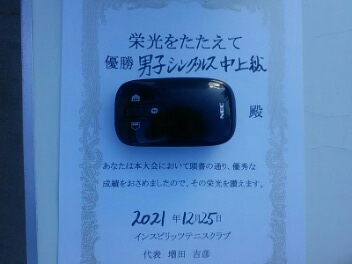 栄光をたたえて
優勝 男子シングルス中上級
NEC
殿
あなたは本大会において頭書の通り、優秀な
成績をおさめましたので、その栄光を讃えます。
2021年12月25日
インスピリッツテニスクラブ
代表 増田 吉彦